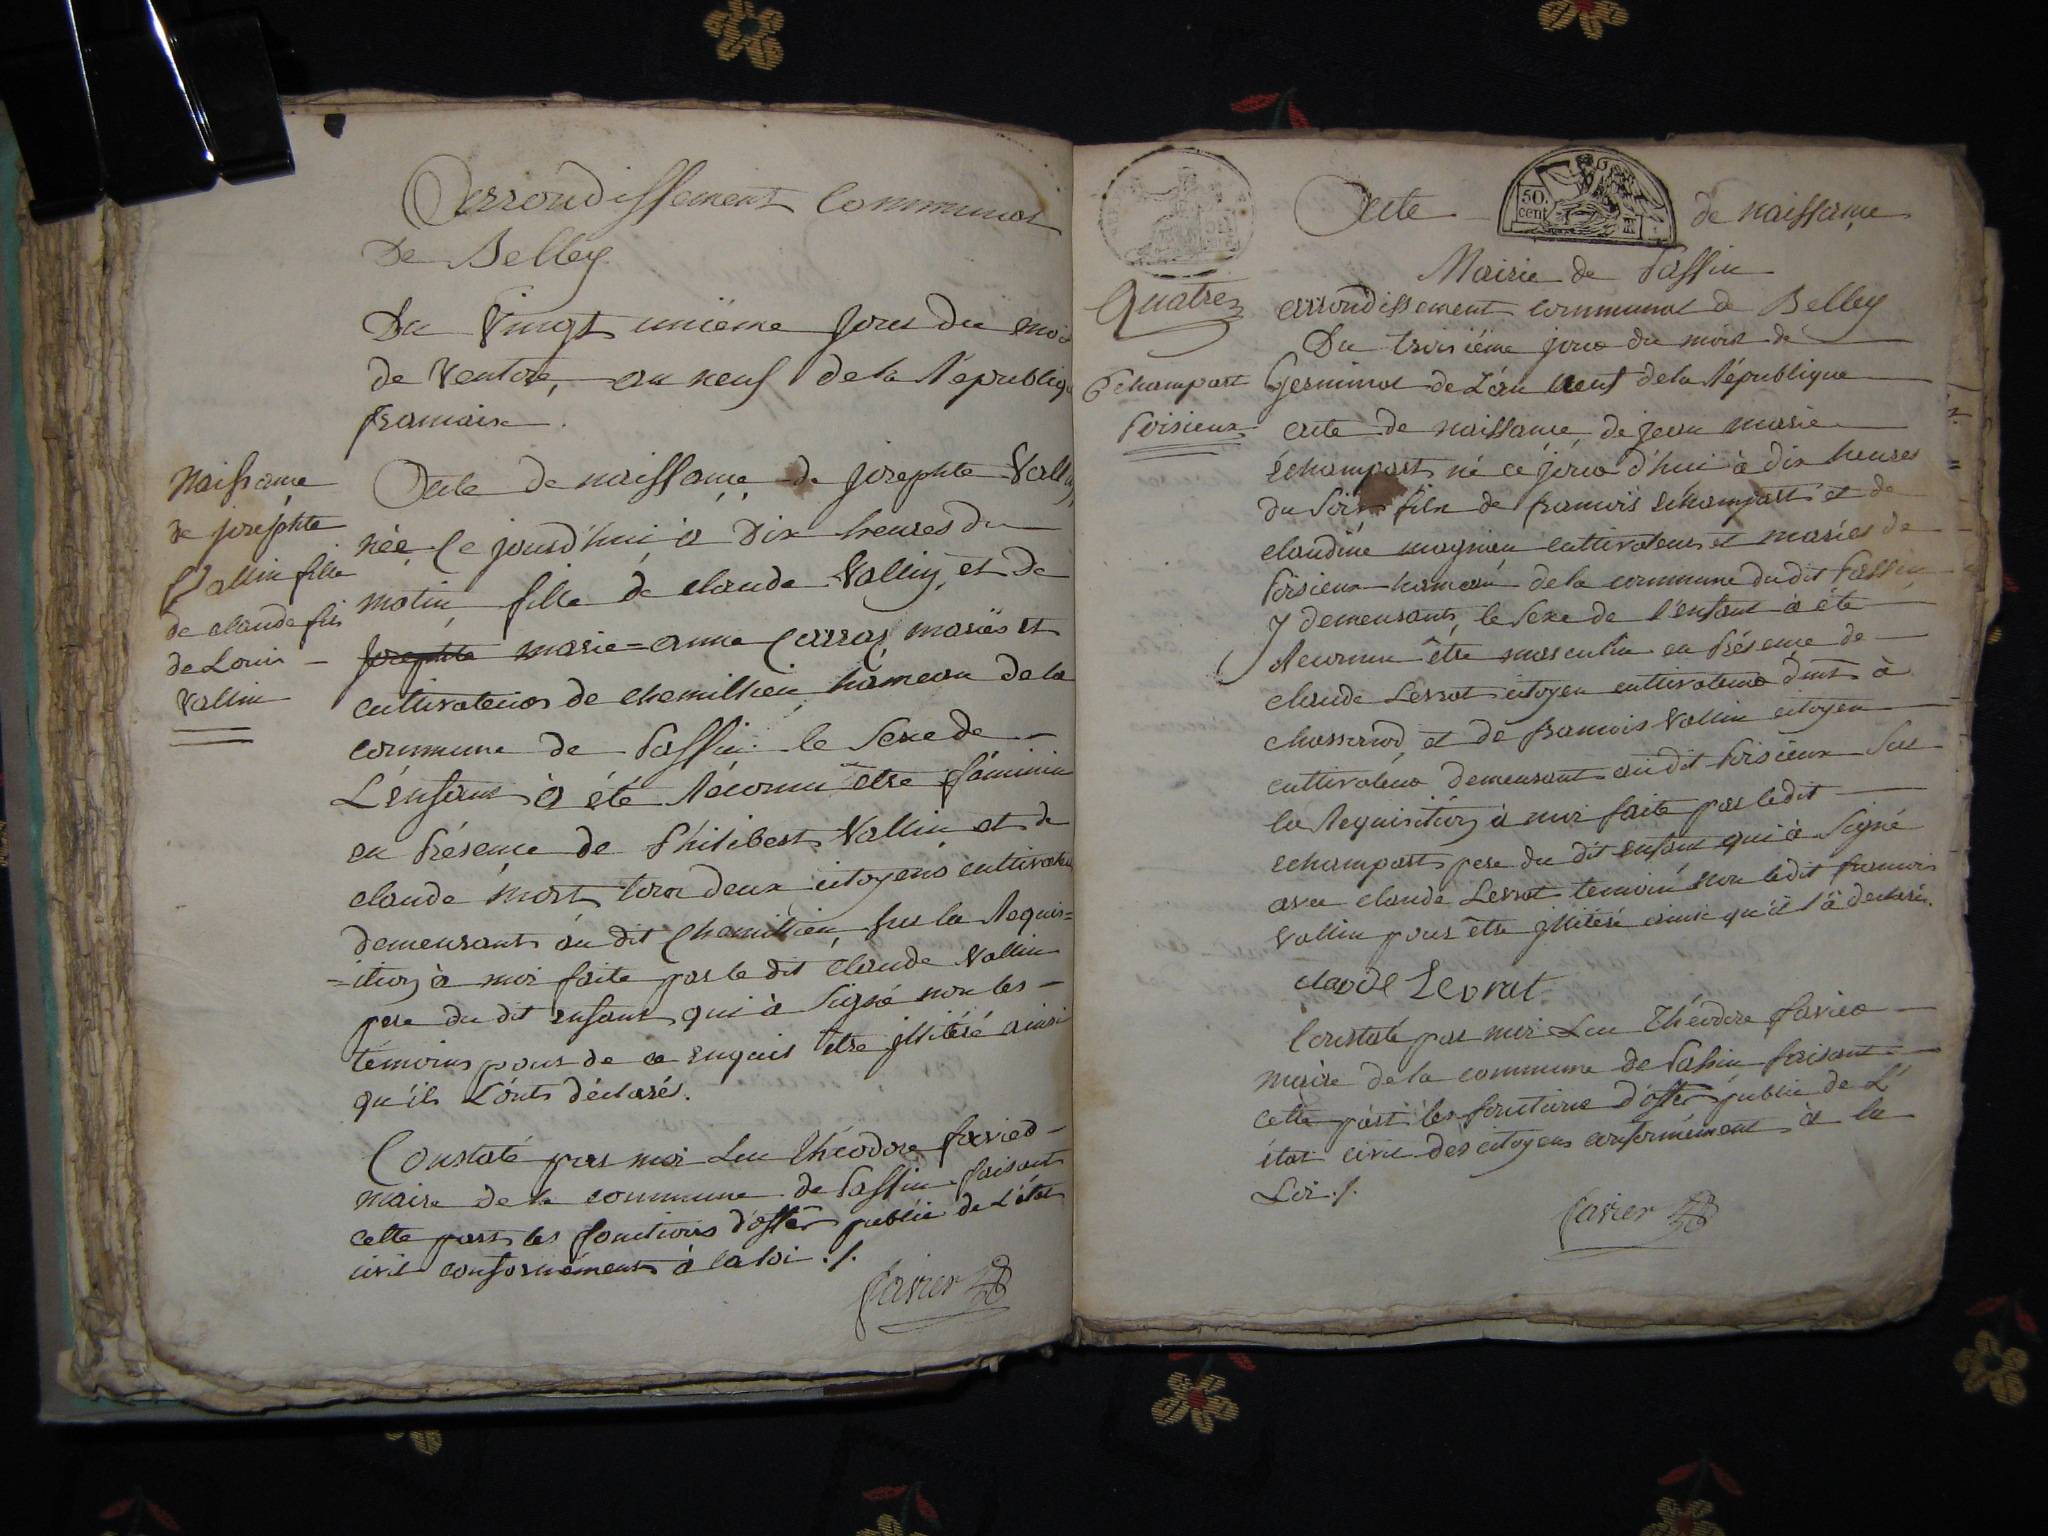 Arrondissement Communal
de Belley
Du Vingt unième jour du mois
de Ventose, an neuf de la République
francaise.
Naissance
de josephte
Vallin fille
de claude fils
de Louis
Vallin
Acte de naissance de josephte Vallin,
née Ce jourd'hui à Dix heures du
matin, fille de claude Vallin, et de
josephte marie=anne Carraz, mariés et
cultivateurs de chemillieu, hameau de la
commune de Passin. le Sexe de
L'enfant à été Réconnu être féminin
en Présence de Philibert Vallin et de
claude mort tous deux citoyens cultivateurs
demeurants au dit Chemillieu, sur la Requis=
=ition à moi faite par le dit Claude Vallin
pere du dit enfant qui à Signé non les
témoins pour de ce enquis être illitéré ainsi
qu'ils L'onts déclarés.
Constaté par moi Luc théodore favier
maire de la commune de Passin faisant
cette part les fonctions d'offer public de L'état
civil conformément à la loi ./.
favier
50.
cent
Acte de naissance
Mairie de Passin
Quatre
arrondissement communal de Belley
Du troisiéme jour du mois de
Echampart
Poisieux
Germinal de L'an neuf de la République
acte de naissance, de jean marie
échampart né ce jourd'hui à dix heures
du Soir fils de francois echampart et de
claudine magnien cultivateurs et mariés de
Poisieux hameau de la commune du dit Passin
y demeurants, le Sexe de l'enfant à été
Reconnu être masculin en Présence de
claude Levrat citoyen cultivateur dmt à
chasserod, et de francois Vallin citoyen
cultivateur demeurant au dit Poisieux Sur
la Requisition à moi faite par le dit
echampart pere du dit enfant qui à Signé
avec claude Levrat temoin non ledit francois
Vallin pour être illiteré ainsi qu'il l'à declaré.
claode Levrat
Constaté par moi Luc Théodore favier
maire de la commune de Passin faisant
cette part les fonctions d'offer public de L'
état civil des citoyens conformément à la
Loi ./.
favier